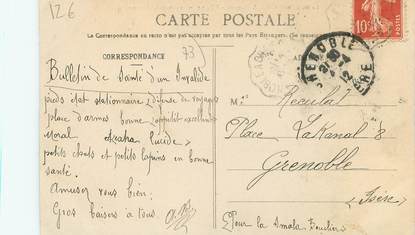 126
CARTE POSTALE
La Correspondance au recto n'est pas acceptée par tous les Pays Étrangers. (Se renseigner
CORRESPONDANCE
73
Bulletin de Santé d'un Invalide
pieds état stationnaire (défense de voyager)
place d'armes bonne (appétit excellent)
Moral lucide
petits chats et petits lapins en bonne
santé.
Amusez vous bien.
Gros baisers à tous.
M. Recülat
Place Lakanal 8
Grenoble
Isère
Pour la Smala
GRENOBLE
ISERE
10